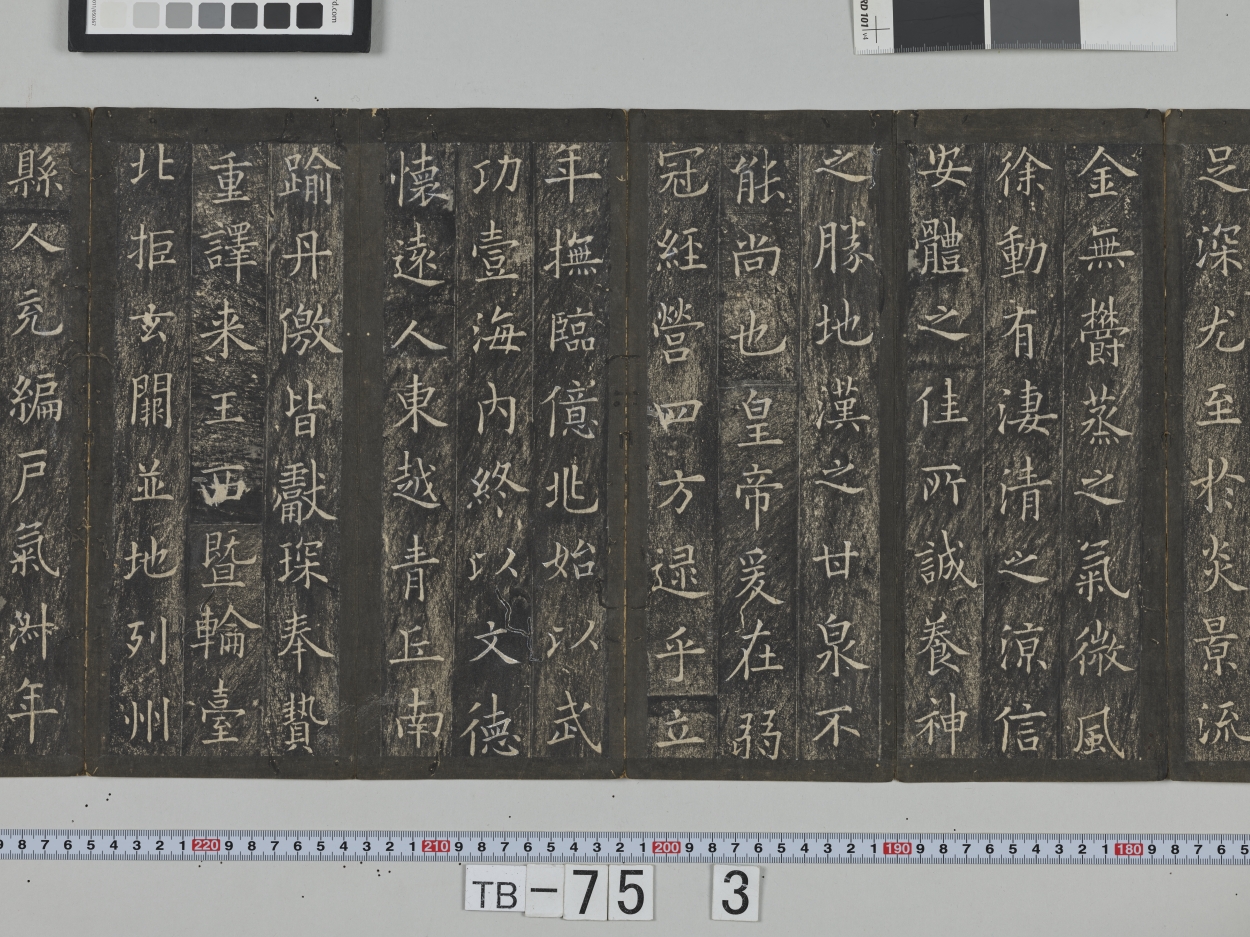 足深尤至於炎景流
金無欝蒸之氣微風
徐動有淒清之涼信
安體之佳所誠養神
之勝地漢之甘泉不
能尚也皇帝爰在弱
冠經營四方逯乎立
年撫臨億兆始以武
功壹海内終以文德
懷遠人東越青丘南
踰丹徼皆獻琛奉贄
重譯来王西曁輪臺
北拒玄闕並地列州
縣人充編戸氣淑年
TB-75 3
220
210
200
190
180